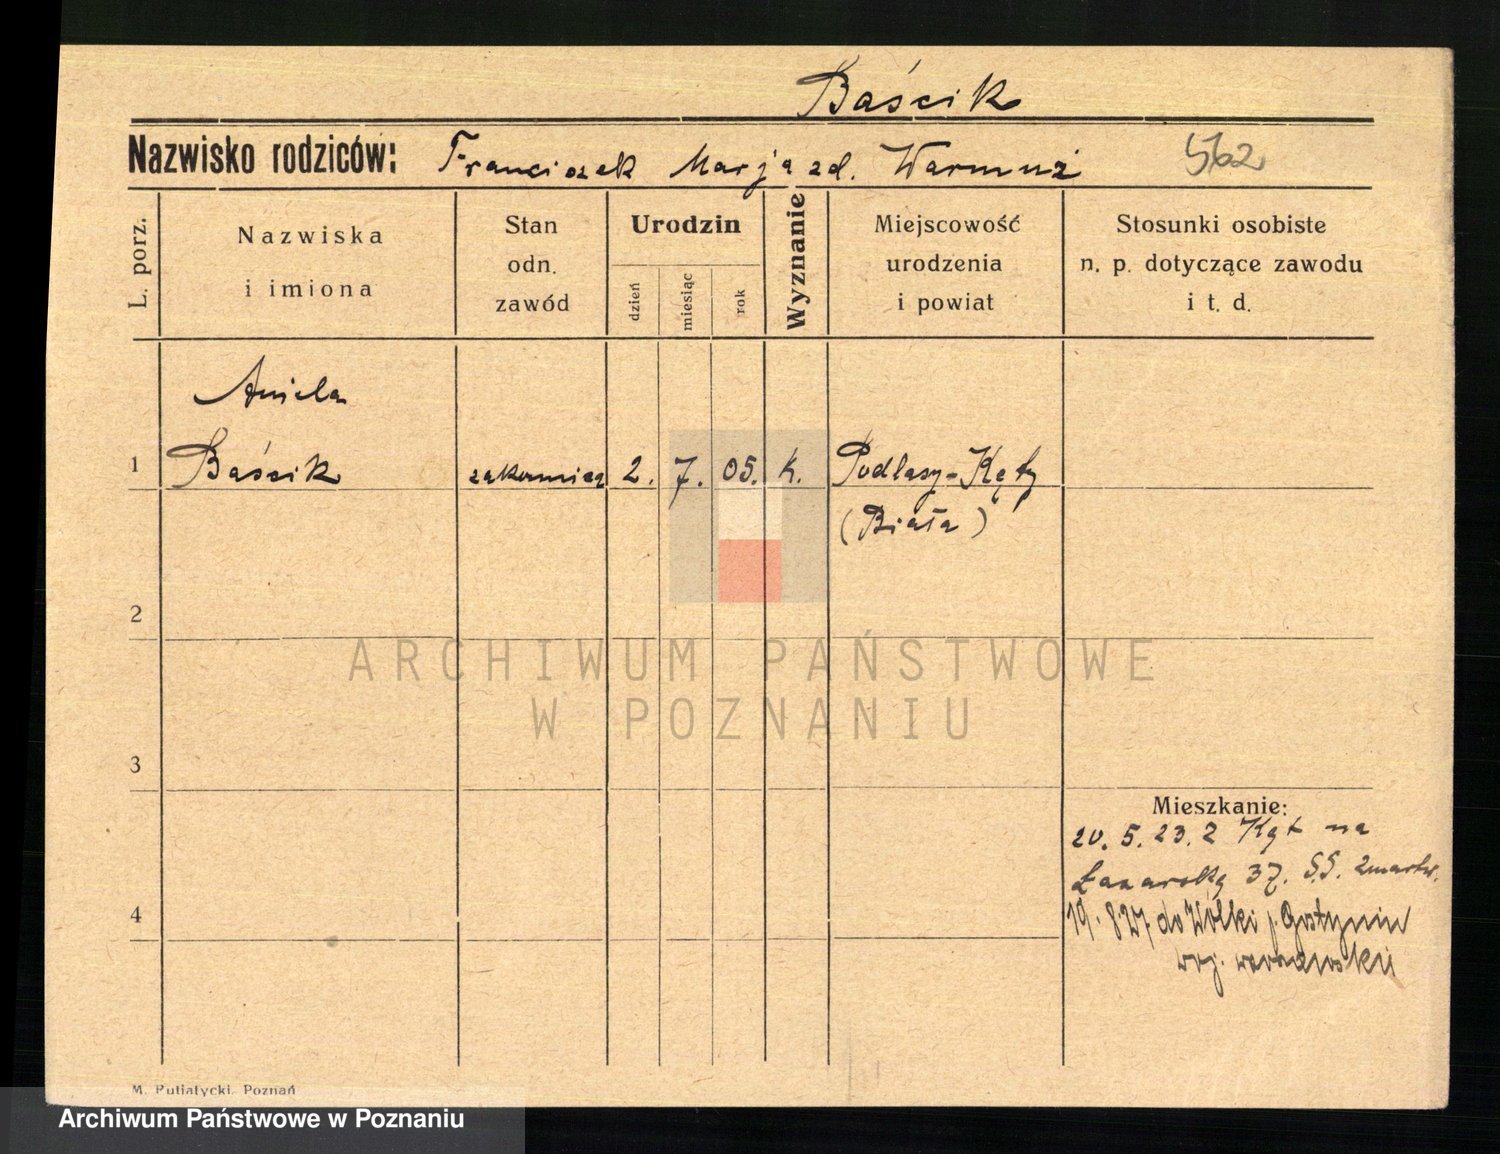 Baścik
Nazwisko rodziców: Franciszek Marja zd. Warmuż 562
L. porz.
Nazwiska
i imiona
Stan
odn.
zawód
Urodzin
dzień
miesiąc
rok
Wyznanie
Miejscowość
urodzenia
i powiat
Stosunki osobiste
n. p. dotyczące zawodu
i t. d.
Aniela
1 Baścik zakonnica 2. 7. 05. k. Podlasy-Kęty
(Biała)
2
ARCHIWUM PAŃSTWOWE
W POZNANIU
3
Mieszkanie:
20. 5. 23. z Kęt na
Łazarską 37. S.S. Zmartw.
4
19. 8 27. do Wólki p. Gostynin
woj. warszawskie
M. Putiatycki. Poznań
Archiwum Państwowe w Poznaniu